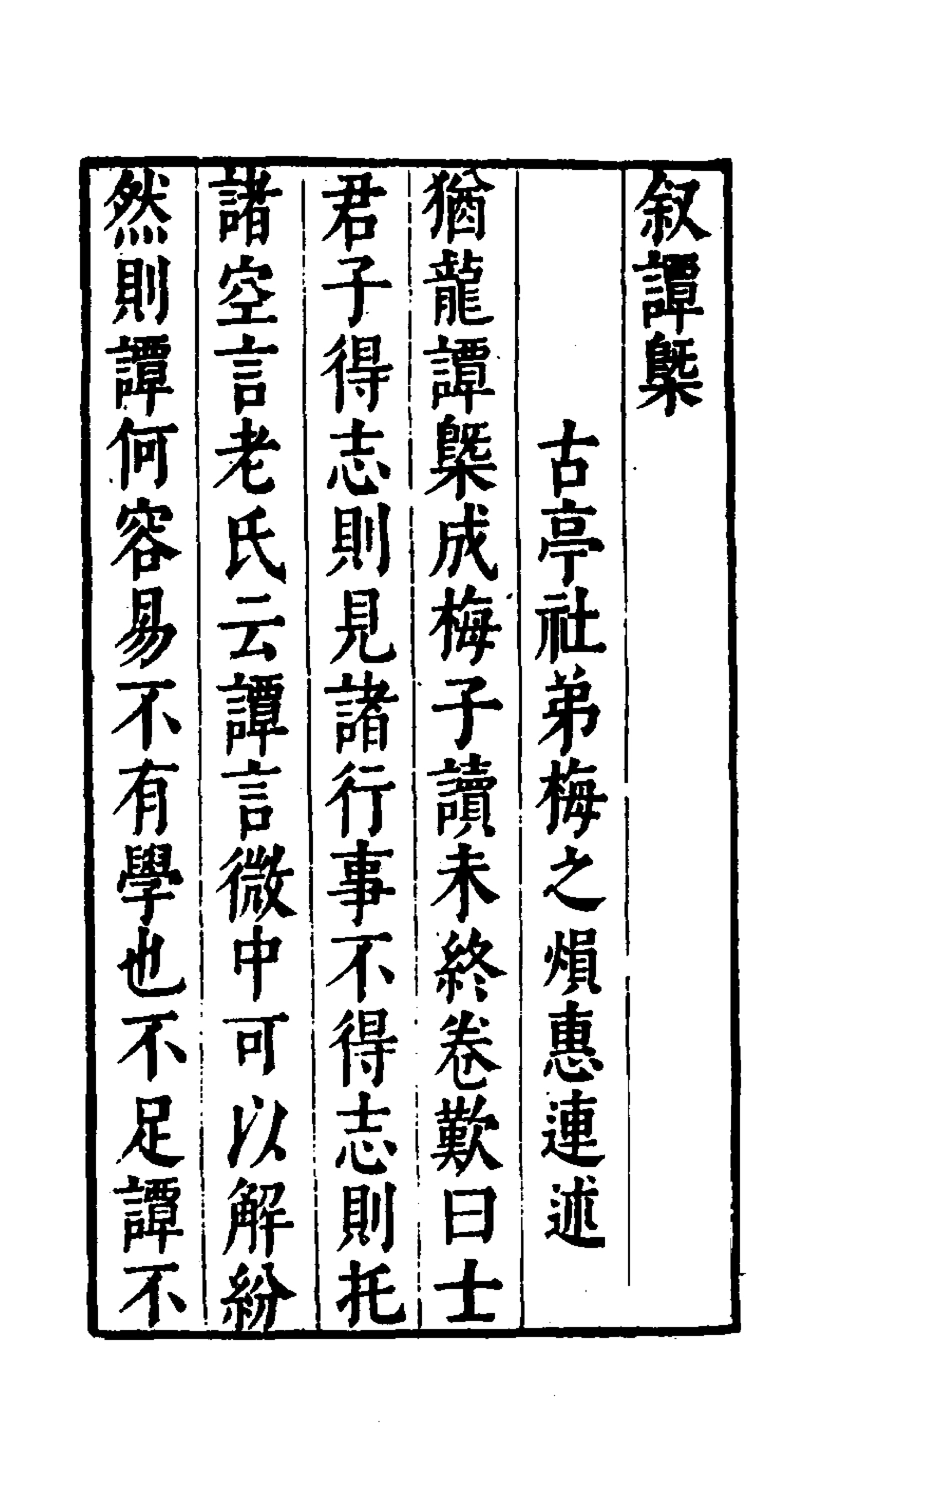 叙譚槩
古亭社弟梅之熉惠連述
猶龍譚槩成梅子讀未終卷歎曰士
君子得志則見諸行事不得志則托
諸空言老氏云譚言微中可以解紛
然則譚何容易不有學也不足譚不